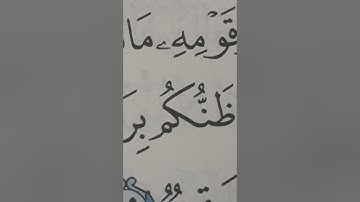 قَوْمِهِۦ مَا
ظَنُّكُم بِرَ